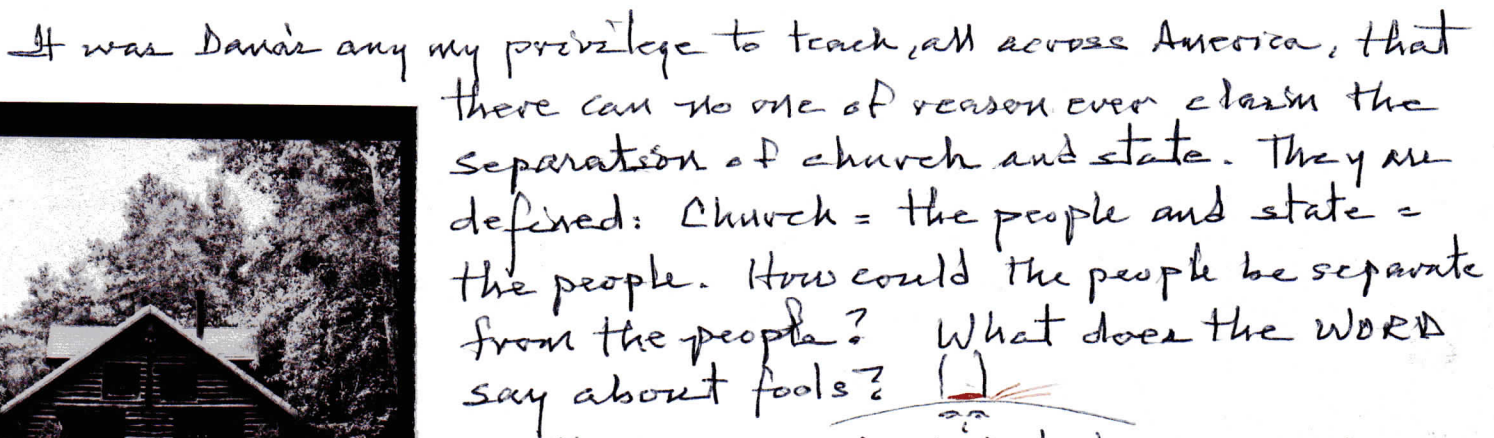 It was Dana's any my privilege to teach, all across America, that
there can no one of reason ever claim the
separation of church and state. They are
defined: Church = the people and state =
the people. How could the people be separate
from the people? What does the WORD
say about fools?